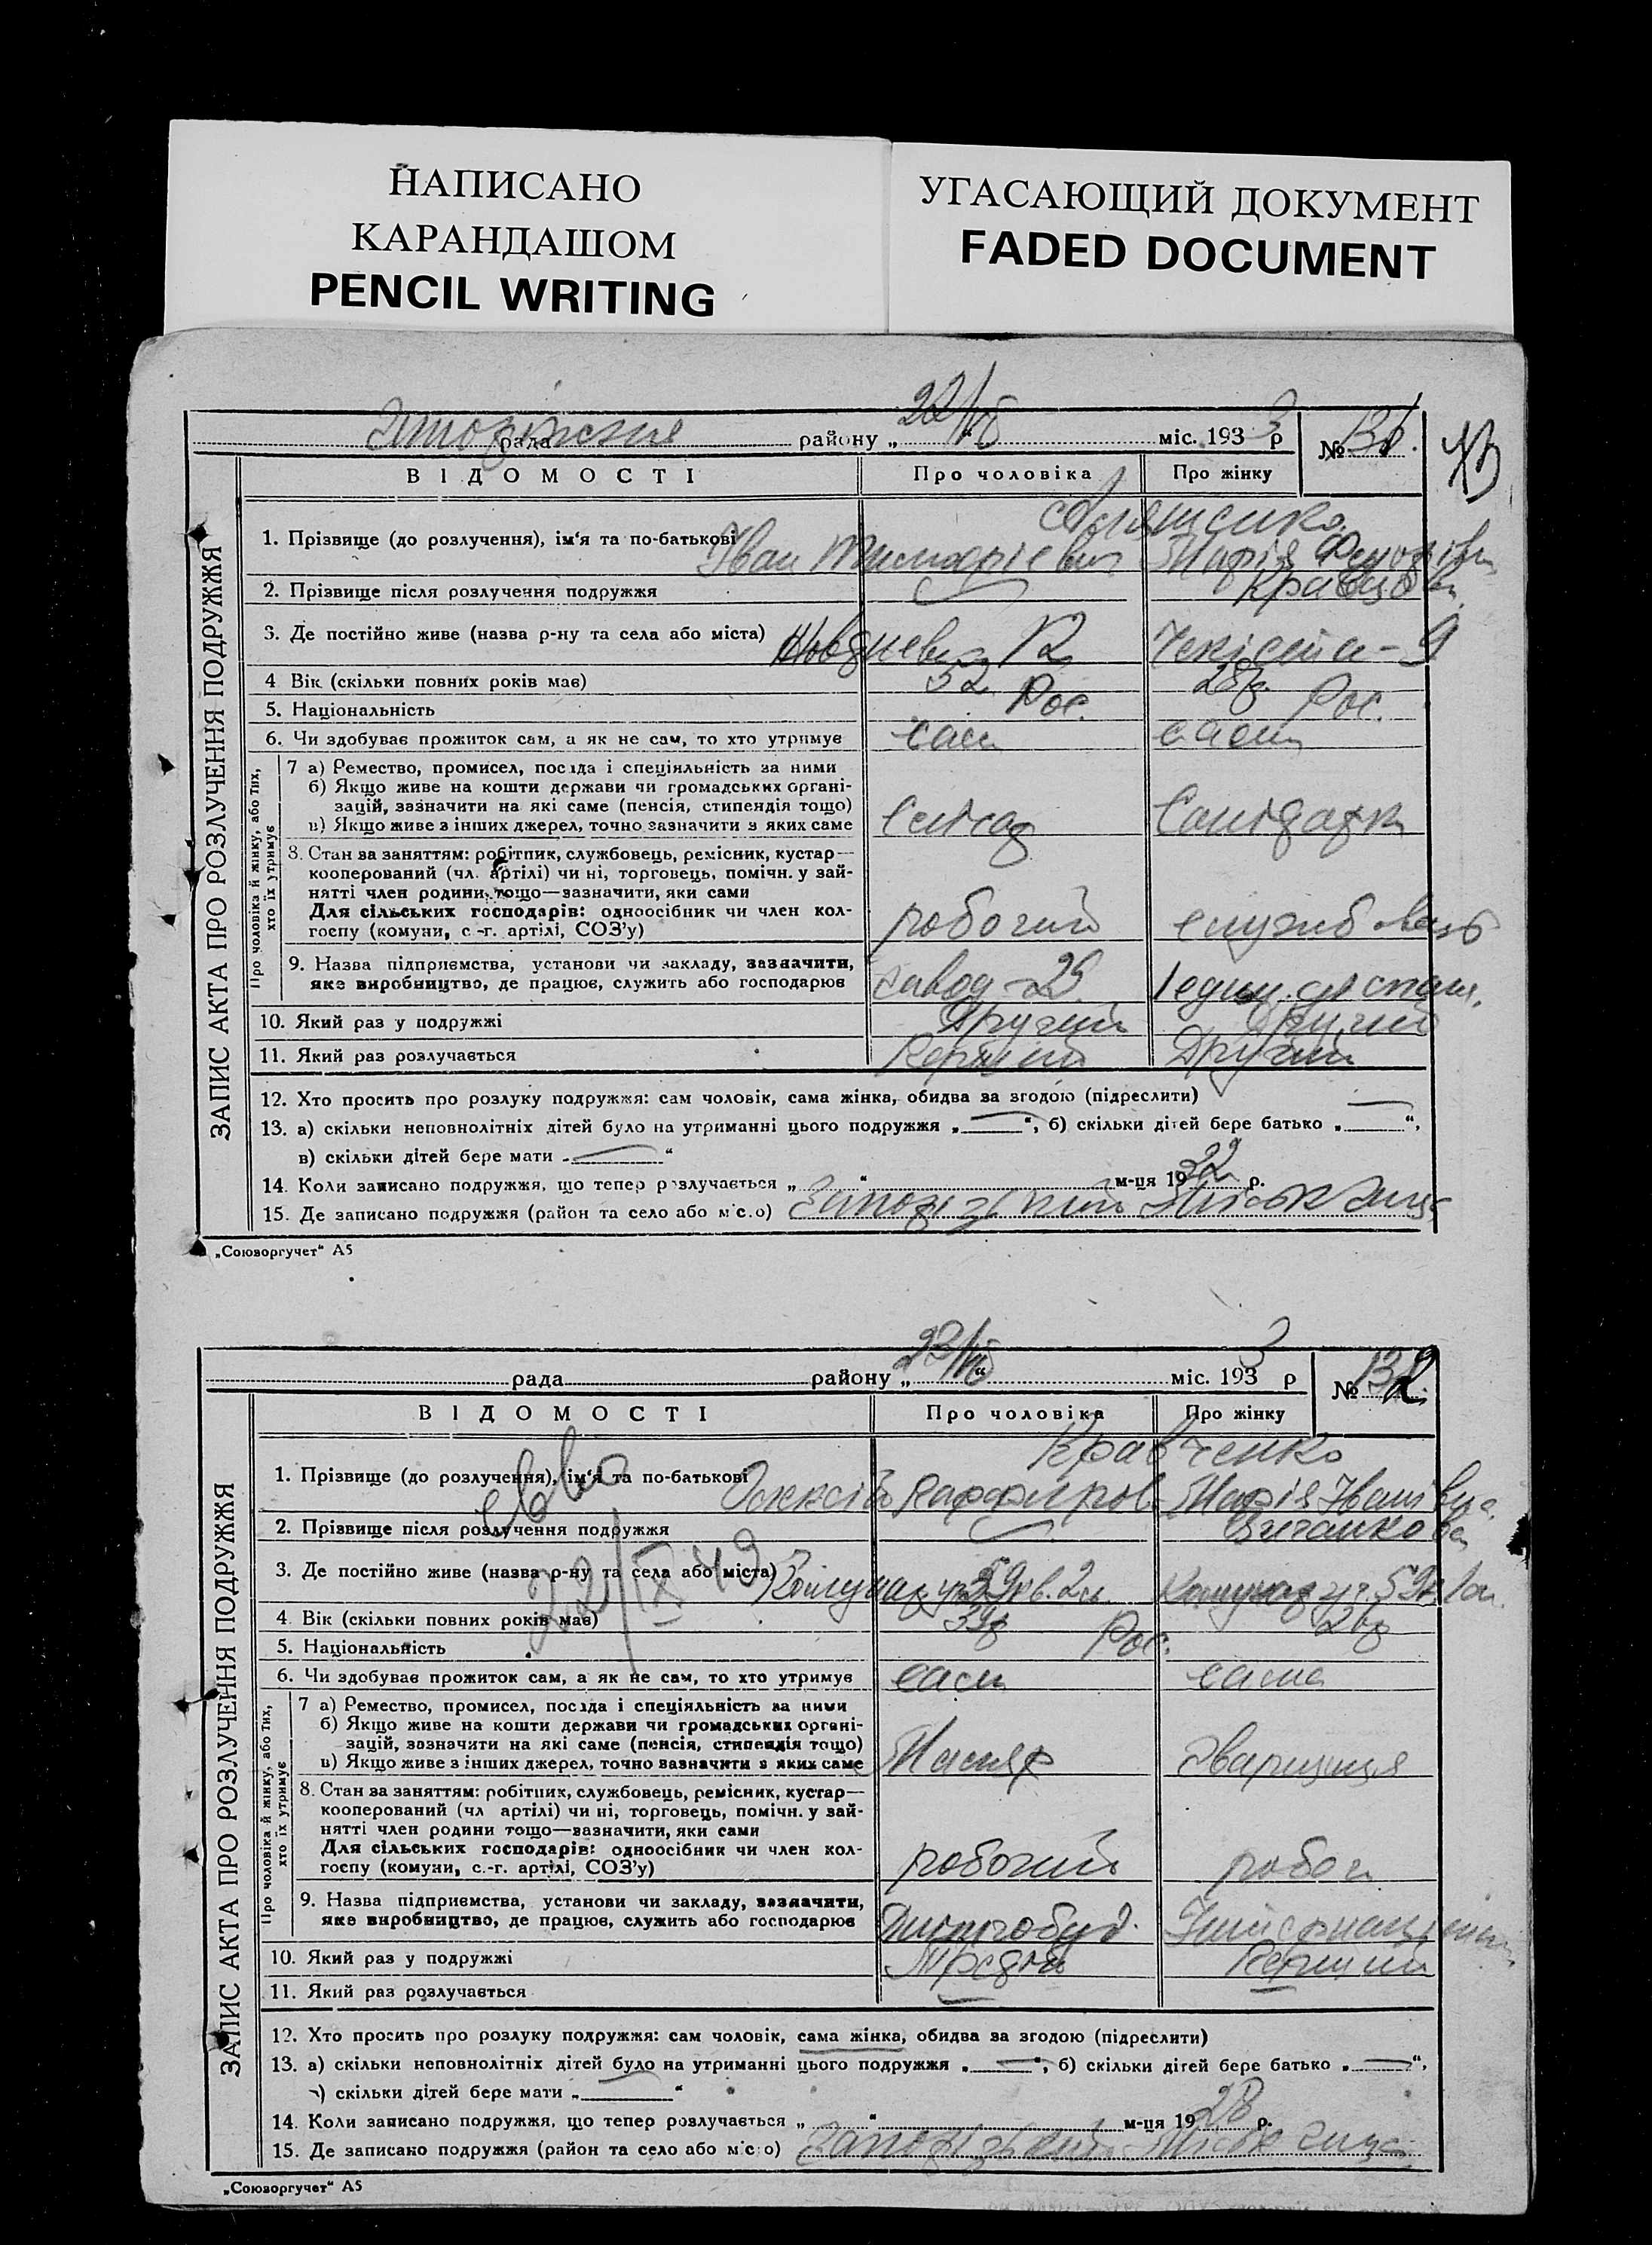 НАПИСАНО
КАРАНДАШОМ
PENCIL WRITING
УГАСАЮЩИЙ ДОКУМЕНТ
FADED DOCUMENT
рада району „ 22/VIII “ міс. 1933 р № 131.
ЗАПИС АКТА ПРО РОЗЛУЧЕННЯ ПОДРУЖЖЯ
ВІДОМОСТІ Про чоловіка Про жінку
1. Прізвище (до розлучення), ім‘я та по-батькові Іван Марія
2. Прізвище після розлучення подружжя
3. Де постійно живе (назва р-ну та села або міста) 12 Чекіста - 9
4 Вік (скільки повних років має) 32 28р.
5. Національність Рос. Рос.
6. Чи здобуває прожиток сам, а як не сам, то хто утримує сам сама
Про чоловіка й жінку, або тих, хто їх утримує
7 а) Ремество, промисел, посада і спеціяльність за ними
б) Якщо живе на кошти держави чи громадських організацій, зазначити на які саме (пенсія, стипендія тощо)
в) Якщо живе з інших джерел, точно зазначити з яких саме
8. Стан за заняттям: робітник, службовець, ремісник, кустар—
кооперований (чл. артілі) чи ні, торговець, помічн. у зай-
нятті член родини, тощо—зазначити, яки сами
Для сільських господарів: одноосібник чи член кол-
госпу (комуни, с.-г. артілі, СОЗ’у) робочий службовець
9. Назва підприємства, установи чи закладу, зазначити,
яке виробництво, де працює, служить або господарює завод-29
10. Який раз у подружжі Другий Другий
11. Який раз розлучається Перший Другий
12. Хто просить про розлуку подружжя: сам чоловік, сама жінка, обидва за згодою (підреслити)
13. а) скільки неповнолітніх дітей було на утриманні цього подружжя „ — “, б) скільки дітей бере батько „ — “,
в) скільки дітей бере мати „ — “
14. Коли записано подружжя, що тепер розлучається „ “ м-ця 1932 р.
15. Де записано подружжя (район та село або місто) Запорізький
„Союзоргучет“ А5
рада району „ 23/VIII “ міс. 1933 р № 132.
ЗАПИС АКТА ПРО РОЗЛУЧЕННЯ ПОДРУЖЖЯ
ВІДОМОСТІ Про чоловіка Про жінку
Кравченко
1. Прізвище (до розлучення), ім‘я та по-батькові Марія Іванівна
2. Прізвище після розлучення подружжя
22/IX 49
3. Де постійно живе (назва р-ну та села або міста)
4. Вік (скільки повних років має) 39р 26р
5. Національність Рос.
6. Чи здобуває прожиток сам, а як не сам, то хто утримує сам сама
Про чоловіка й жінку, або тих, хто їх утримує
7 а) Ремество, промисел, посада і спеціяльність за ними
б) Якщо живе на кошти держави чи громадських організацій, зазначити на які саме (пенсія, стипендія тощо)
в) Якщо живе з інших джерел, точно зазначити з яких саме Маляр
8. Стан за заняттям: робітник, службовець, ремісник, кустар—
кооперований (чл артілі) чи ні, торговець, помічн. у зай-
нятті член родини тощо—зазначити, яки сами
Для сільських господарів: одноосібник чи член кол-
госпу (комуни, с.-г. артілі, СОЗ’у) робочий
9. Назва підприємства, установи чи закладу, зазначити,
яке виробництво, де працює, служить або господарює
10. Який раз у подружжі Перший
11. Який раз розлучається
12. Хто просить про розлуку подружжя: сам чоловік, сама жінка, обидва за згодою (підреслити)
13. а) скільки неповнолітніх дітей було на утриманні цього подружжя „ — “, б) скільки дітей бере батько „ — “,
в) скільки дітей бере мати „ “
14. Коли записано подружжя, що тепер розлучається „ “ м-ця 1928 р.
15. Де записано подружжя (район та село або місто) Запорізький
„Союзоргучет“ А5